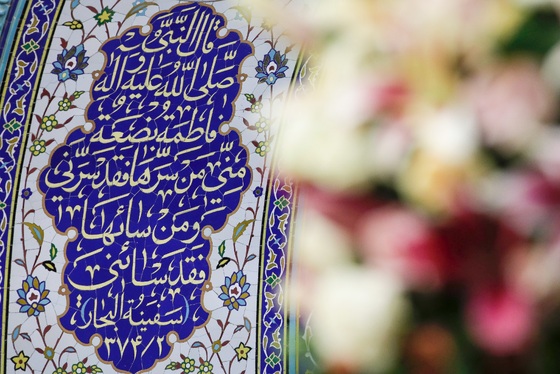 قالَ النَّبِيُّ
صَلَّى اللهُ عَلَيْهِ وَآلِهِ
فاطِمَةُ بَضْعَةٌ
مِنّي مَنْ سَرَّها فَقَدْ سَرَّني
وَمَنْ سائَها
فَقَدْ سائَني
(سفينة البحار)
٢/٣٧٤